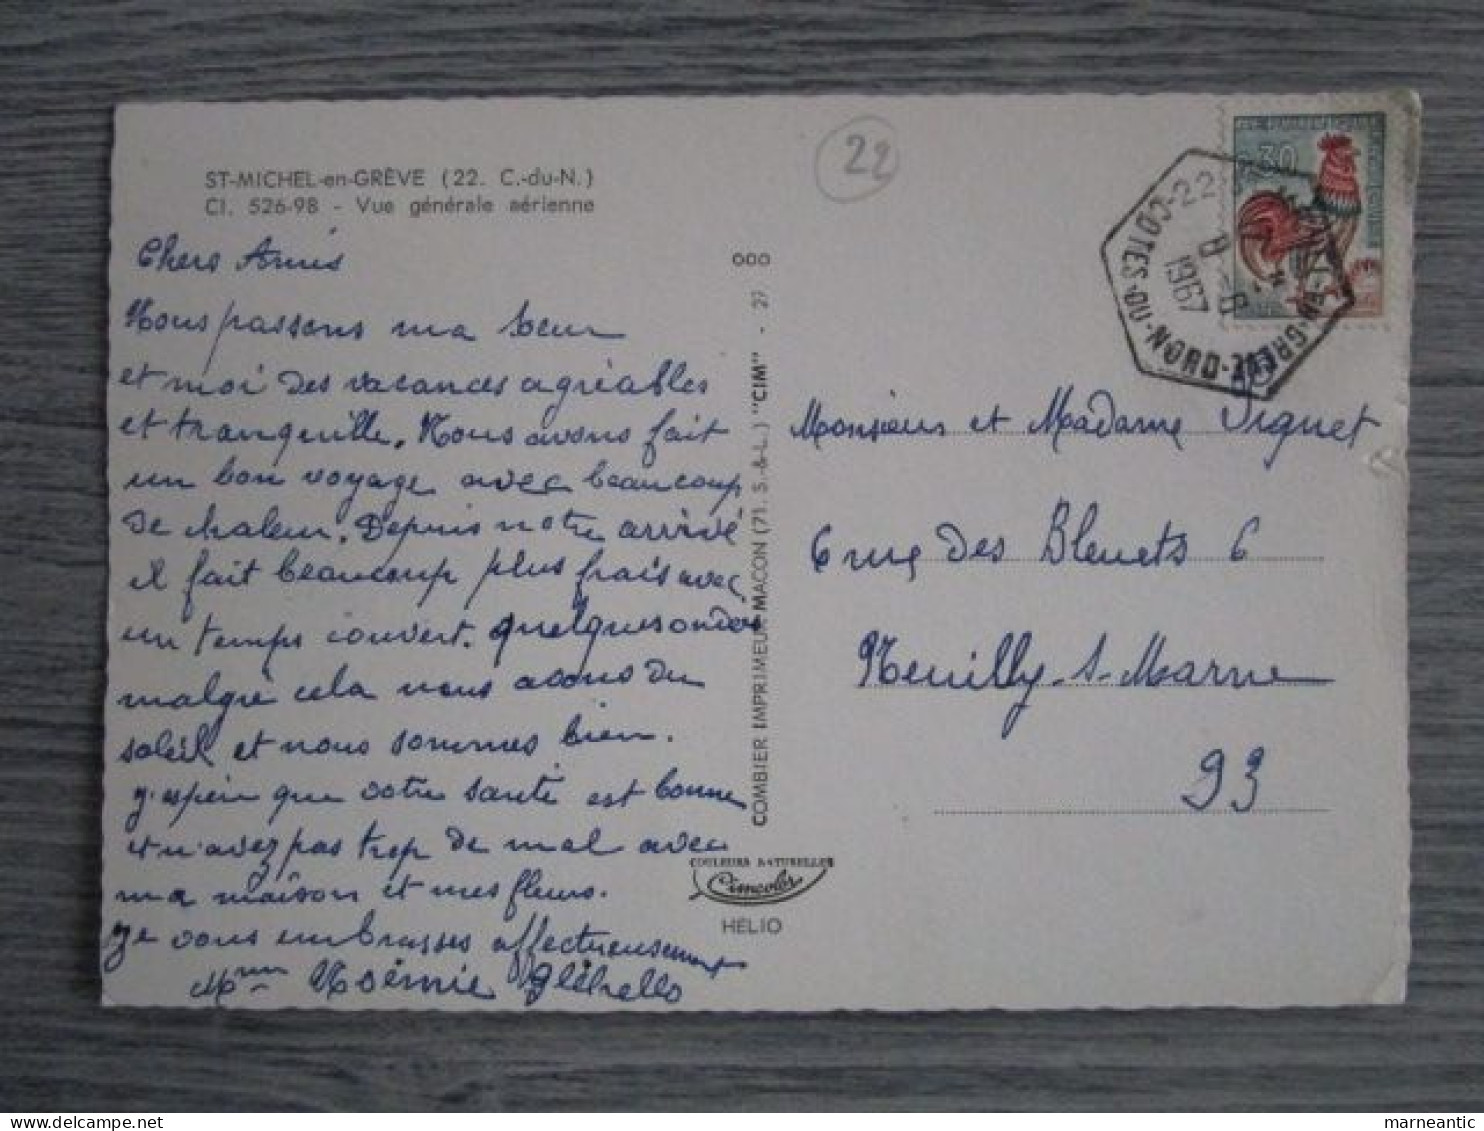 ST-MICHEL-en-GRÈVE (22. C.-du-N.)
CI. 526-98 - Vue générale aérienne
22
Chers Amis
Nous passons ma soeur
et moi des vacances agréables
et tranquille. Nous avons fait
un bon voyage avec beaucoup
de chaleur. Depuis notre arrivé
il fait beaucoup plus frais avec
un temps couvert. quelques ondées
malgré cela nous avons du
soleil et nous sommes bien.
j'espèir que votre santé est bonne
et n'avez pas trop de mal avec
ma maison et mes fleurs.
je vous embrasses affectueusement
Mme Noémie
000
COMBIER IMPRIMEUR MACON (71. S.-&-L.) "CIM" - 27
COULEURS NATURELLES
Cimcolor
HELIO
30
COTES-DU-NORD
8-8
1967
Monsieur et Madame Viguet
6 rue des Bleuets 6
Neuilly-s-Marne
93
marneantic